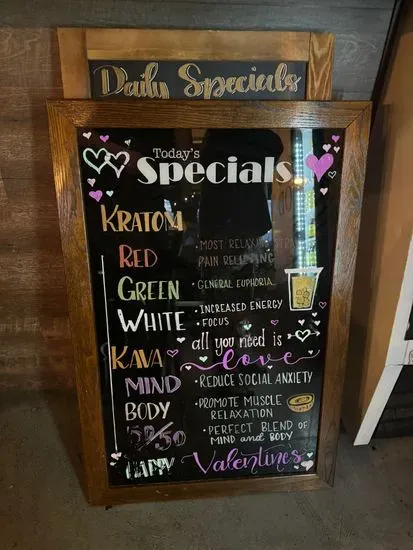 Daily Specials
Today's
Specials
KRATOM
RED
• MOST RELAXING STRAIN
PAIN RELIEVING
GREEN
• GENERAL EUPHORIA
WHITE
• INCREASED ENERGY
• FOCUS
all you need is
love
KAVA
MIND
• REDUCE SOCIAL ANXIETY
BODY
• PROMOTE MUSCLE
RELAXATION
50/50
• PERFECT BLEND OF
MIND and BODY
HAPPY Valentines